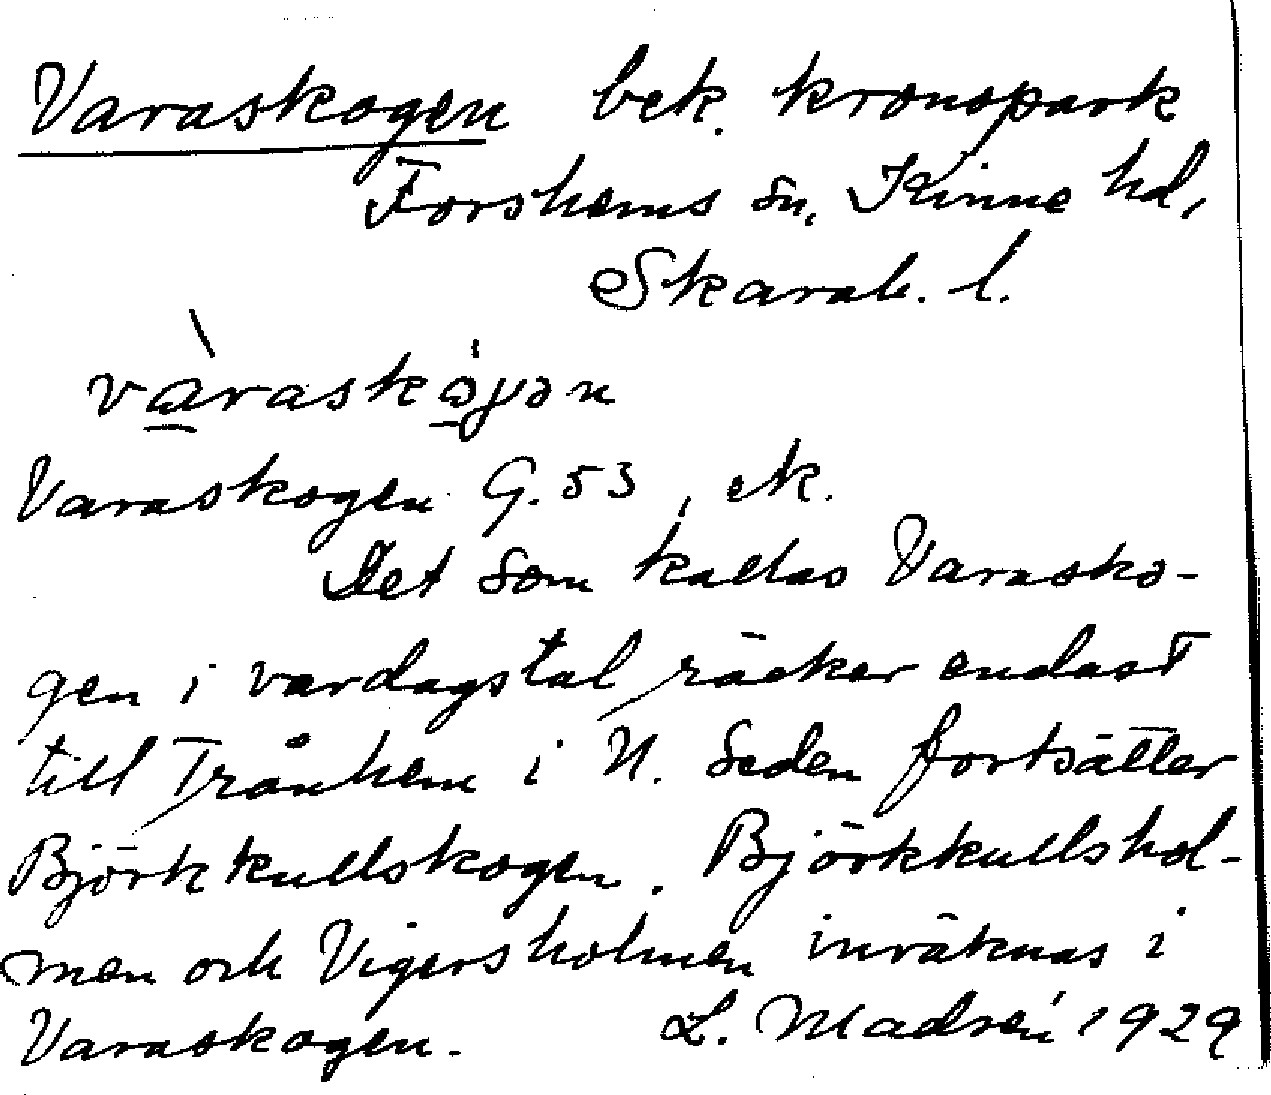 Varaskogen bek. kronopark
Forshems sn, Kinne hd,
Skarab. l.
vàraskóγən
Varaskogen G. 53, ek.
Det som kallas Varasko-
gen i vardagstal räcker endast
till Trånhem i N. Seden fortsätter
Björkkullskogen. Björkkullshol-
men och Vigersholmen inräknas i
Varaskogen. L. Madsén 1929